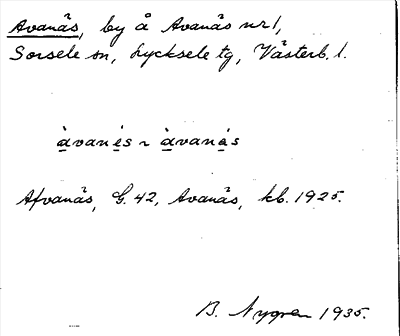 Avanäs, by å Avanäs nr 1,
Sorsele sn, Lycksele tg, Västerb. l.
àvanés ~ àvanàs
Afvanäs, G. 42, Avanäs, kb. 1925.
B. Nygren 1935.